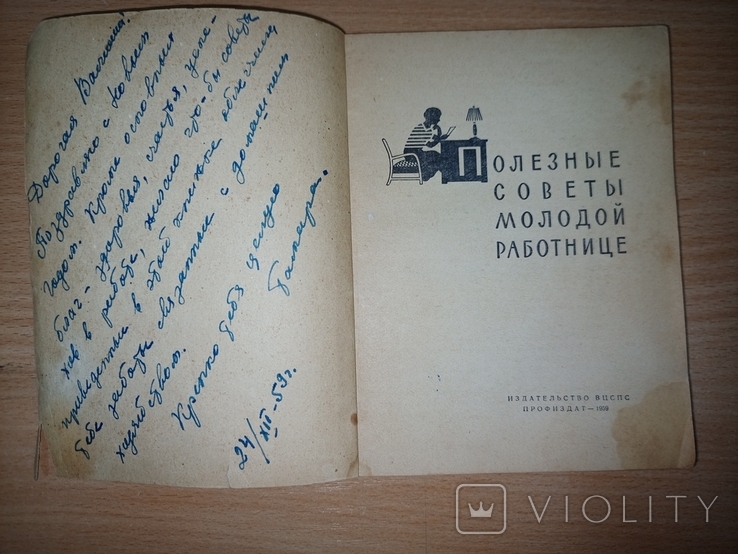 Дорогая Валюша!
Поздравляю с Новым
годом. Кроме основных
благ - здоровья, счастья, успе-
хов в работе, желаю что-бы советы
приведенные в этой книжке облегчили
тебе заботы связанные с домашним
хозяйством.
Крепко тебя целую
Тамара.
24/XII-59г.
ПОЛЕЗНЫЕ
СОВЕТЫ
МОЛОДОЙ
РАБОТНИЦЕ
ИЗДАТЕЛЬСТВО ВЦСПС
ПРОФИЗДАТ — 1959
VIOLITY